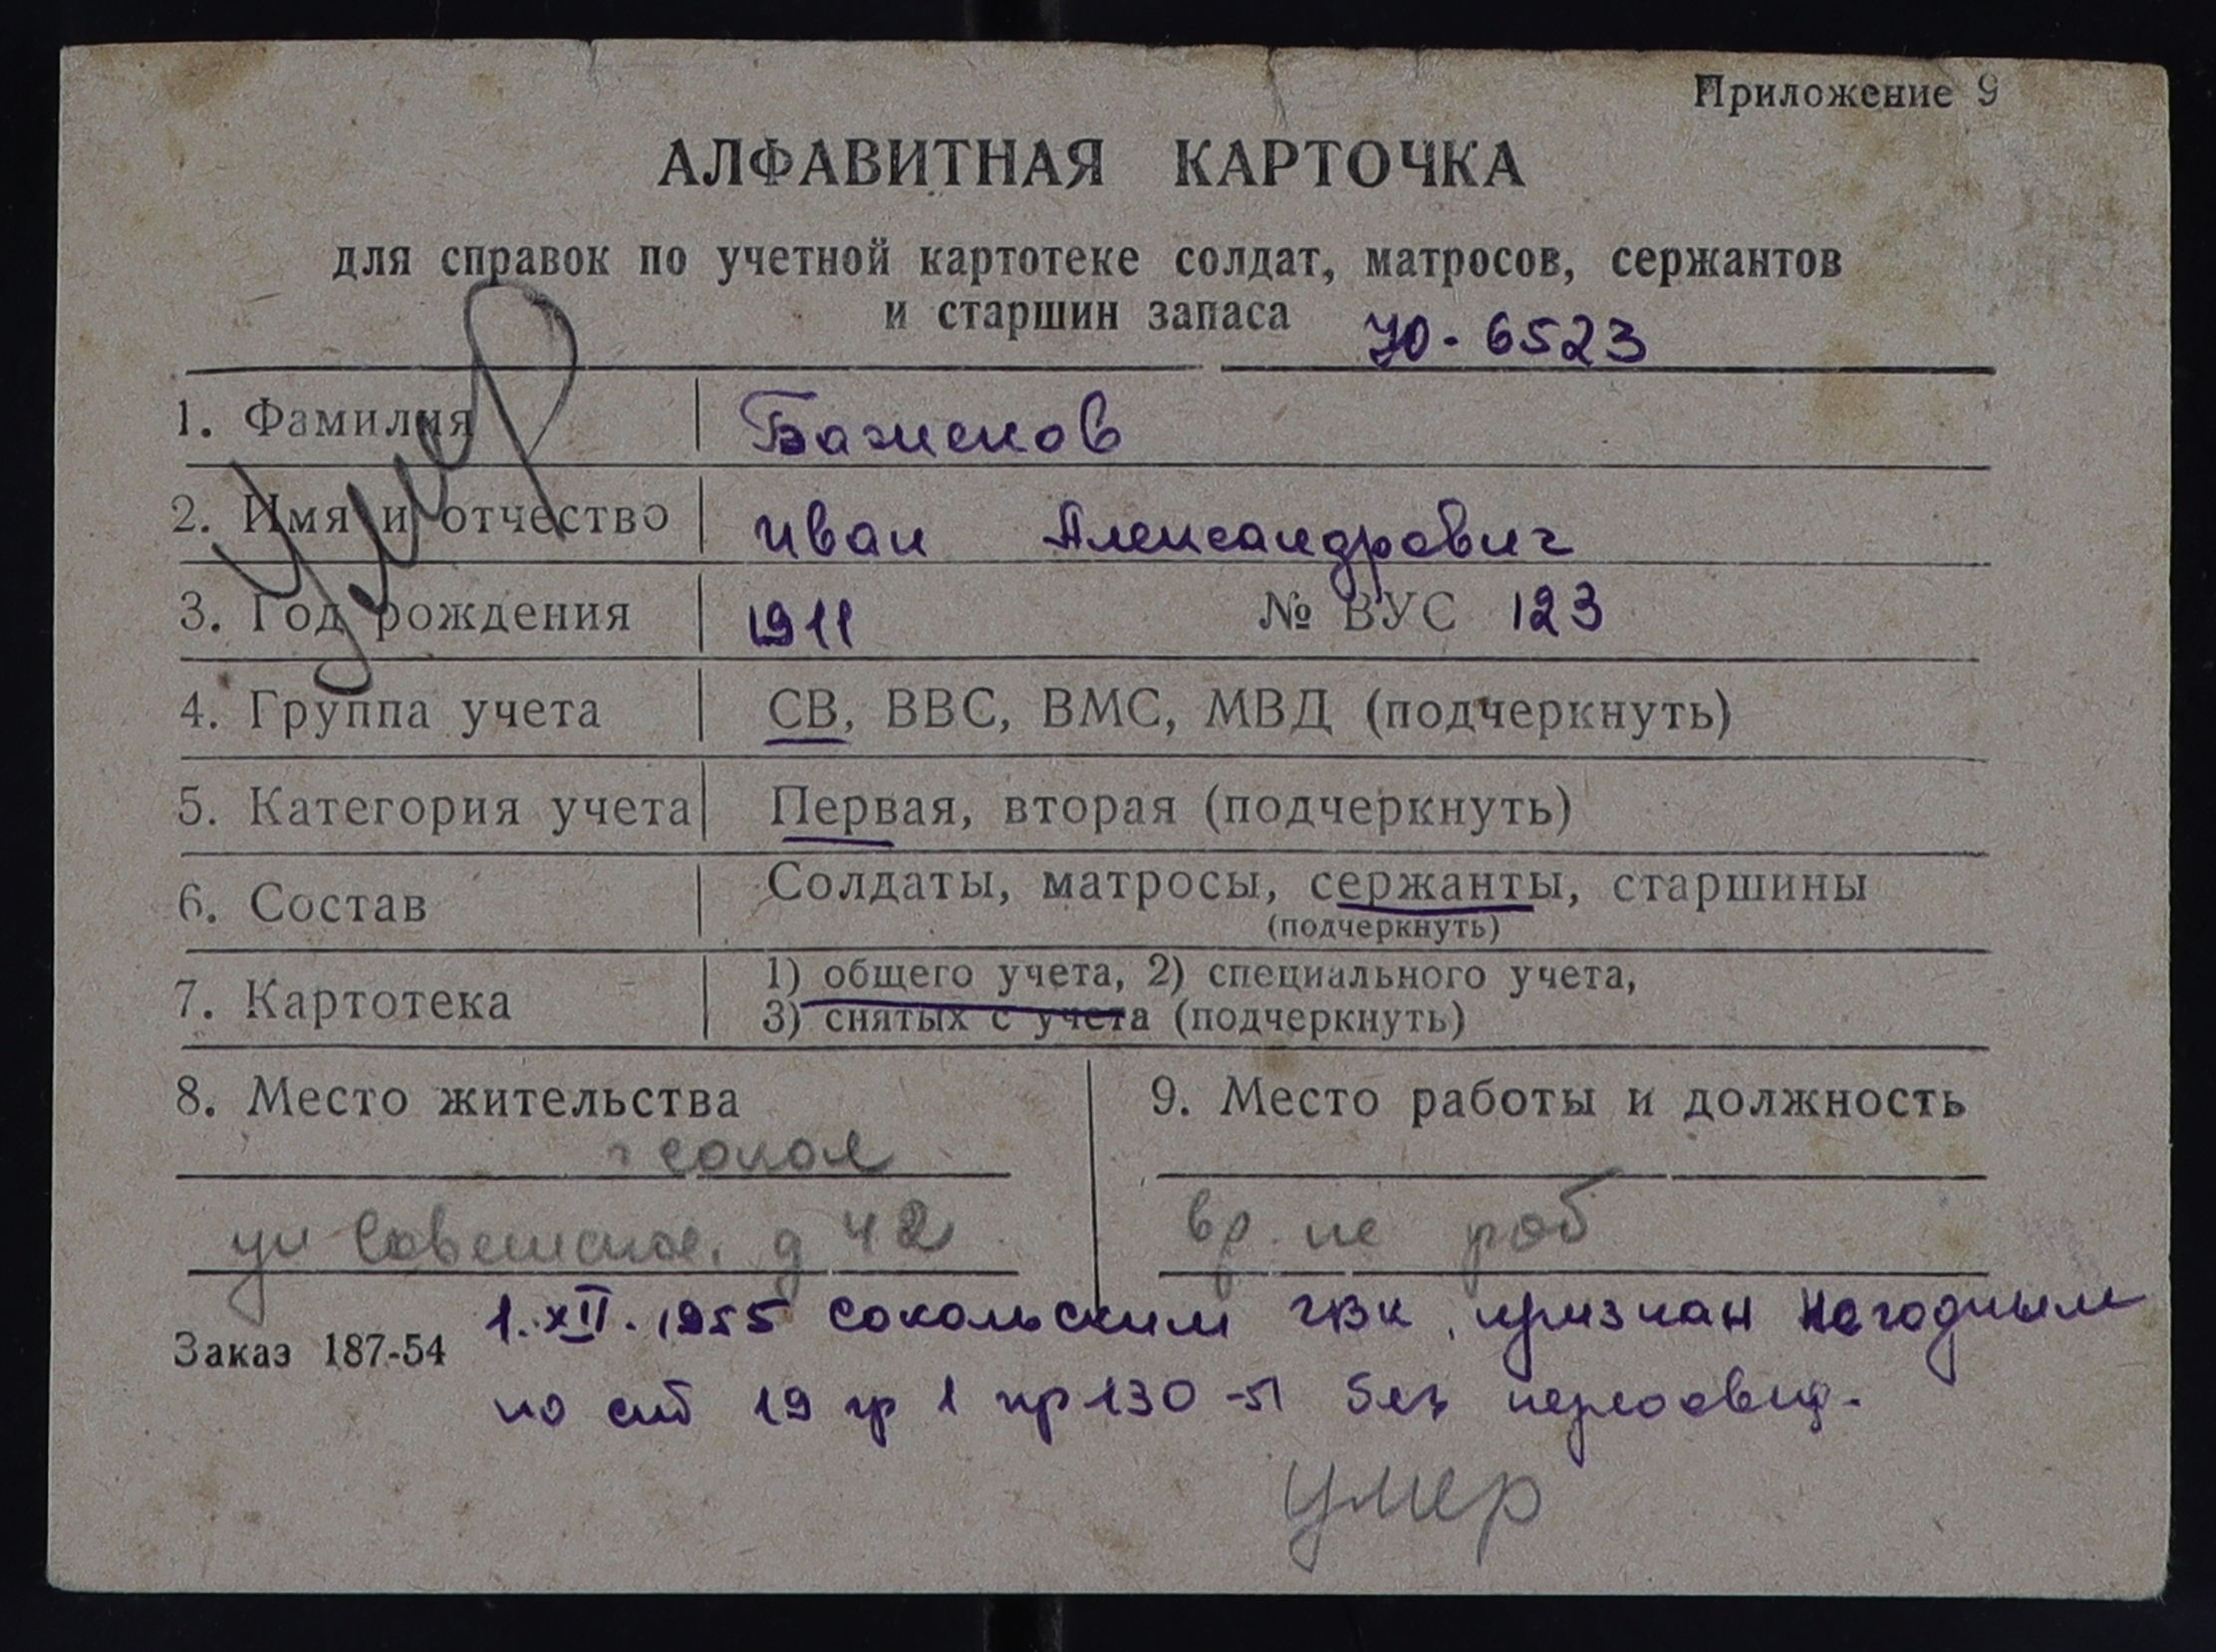 Приложение 9
АЛФАВИТНАЯ КАРТОЧКА
для справок по учетной картотеке солдат, матросов, сержантов
и старшин запаса УО-6523
Умер
1. Фамилия Баженов
2. Имя и отчество Иван Александрович
3. Год рождения 1911 № ВУС 123
4. Группа учета СВ, ВВС, ВМС, МВД (подчеркнуть)
5. Категория учета Первая, вторая (подчеркнуть)
6. Состав Солдаты, матросы, сержанты, старшины
(подчеркнуть)
7. Картотека 1) общего учета, 2) специального учета,
3) снятых с учета (подчеркнуть)
8. Место жительства 9. Место работы и должность
г Сокол
ул Советская. д 42 вр. не раб
1.XII.1955 Сокольским ГВК признан негодным
Заказ 187-54
по ст 19 гр 1 пр 130-51 без переосвид.
умер